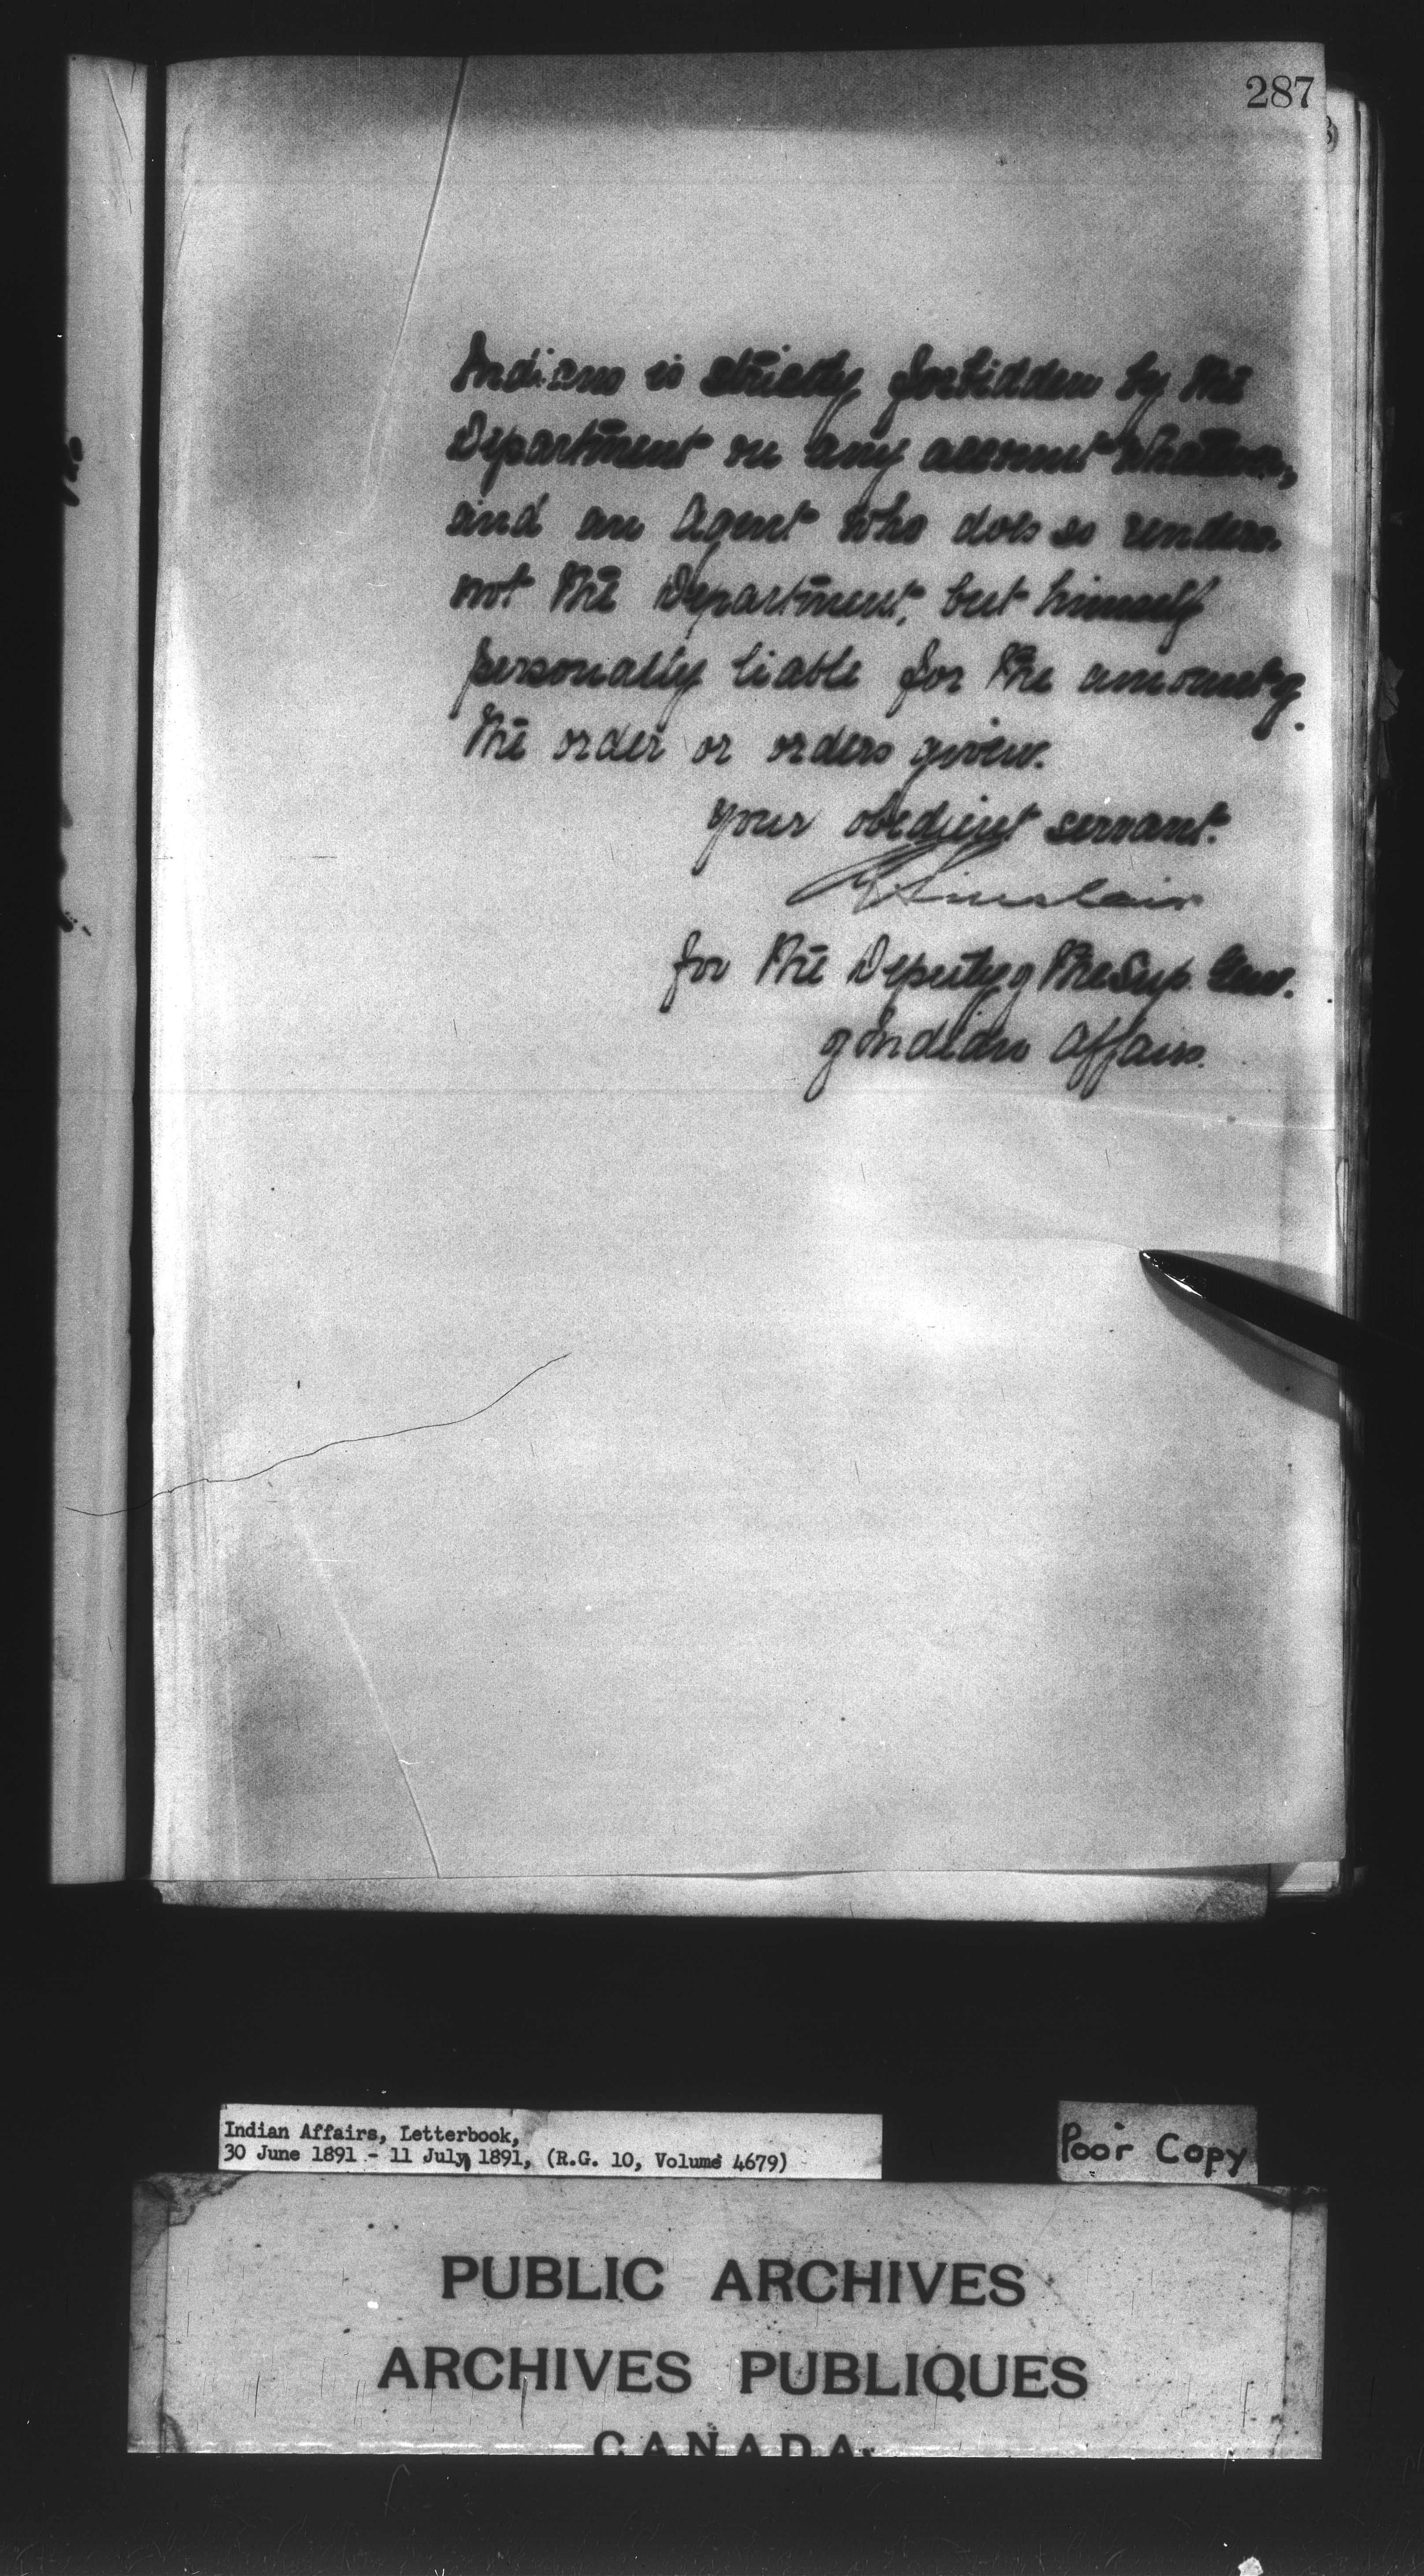 287
Indians is strictly forbidden by the
Department on any account whatever,
and an Agent who does so renders
not the Department, but himself
personally liable for the amount of
the order or orders given.
your obedient servant.
Sinclair
for the Deputy of the Sup. Gen.
of Indian Affairs.
Indian Affairs, Letterbook,
30 June 1891 - 11 July 1891, (R.G. 10, Volume 4679)
Poor Copy
PUBLIC ARCHIVES
ARCHIVES PUBLIQUES
CANADA